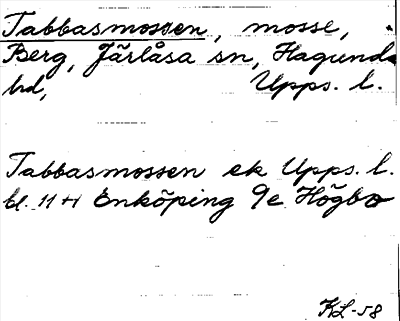 Tabbasmossen, mosse,
Berg, Järlåsa sn, Hagunda
hd, Upps. l.
Tabbasmossen ek Upps. l.
bl. 11 H Enköping 9e Högbo
KL-58